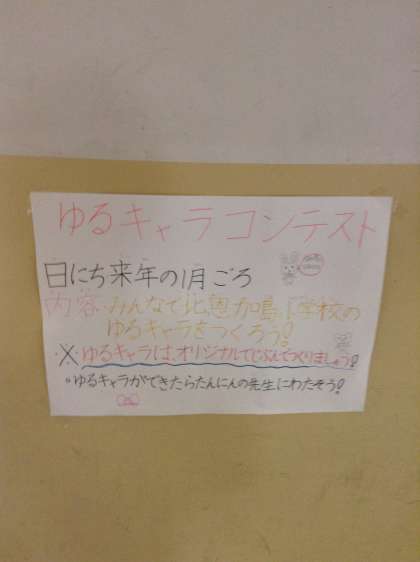 ゆるキャラコンテスト
日にち来年の1月ごろ
内容 みんなで比恵加島小学校の
ゆるキャラをつくろう!
※ゆるキャラは、オリジナルでじぶんでつくりましょう!
。ゆるキャラができたらたんにんの先生にわたそう!